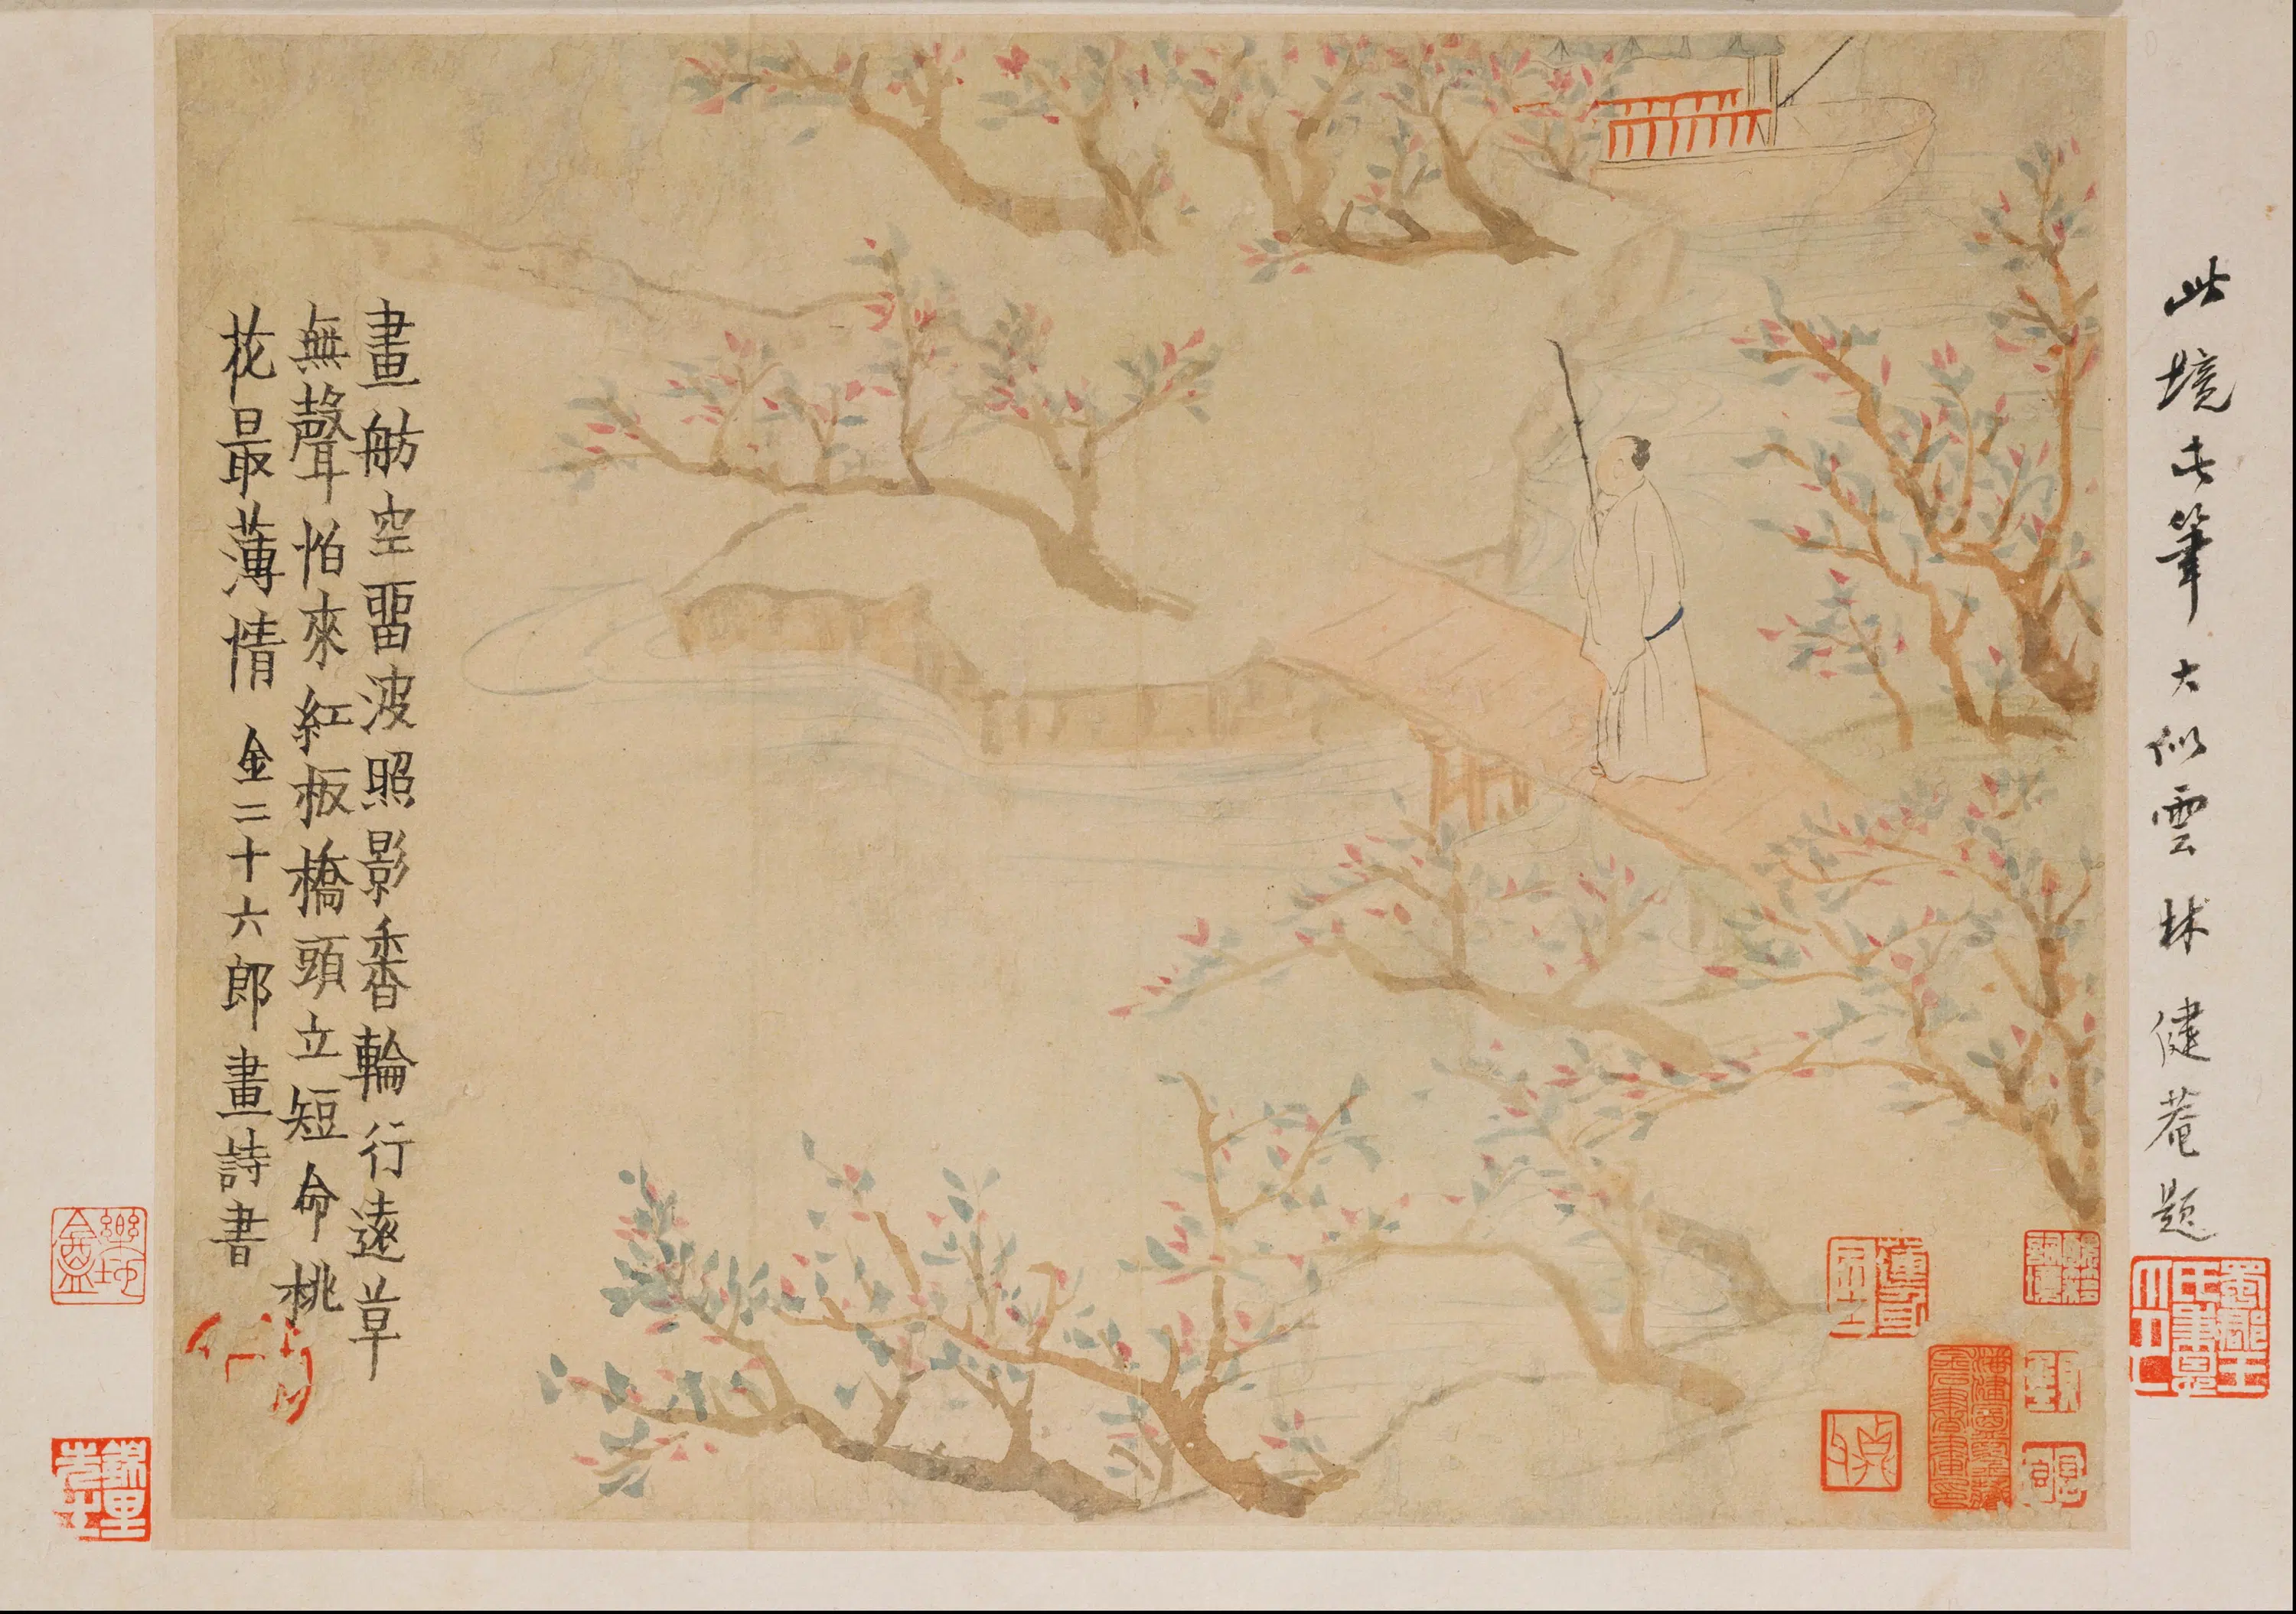 此境此筆大似雲林 健菴題
畫舫空畱波照影香輪行遠草
無聲怕來紅板橋頭立短命桃
花最薄情 金二十六郎畫詩書